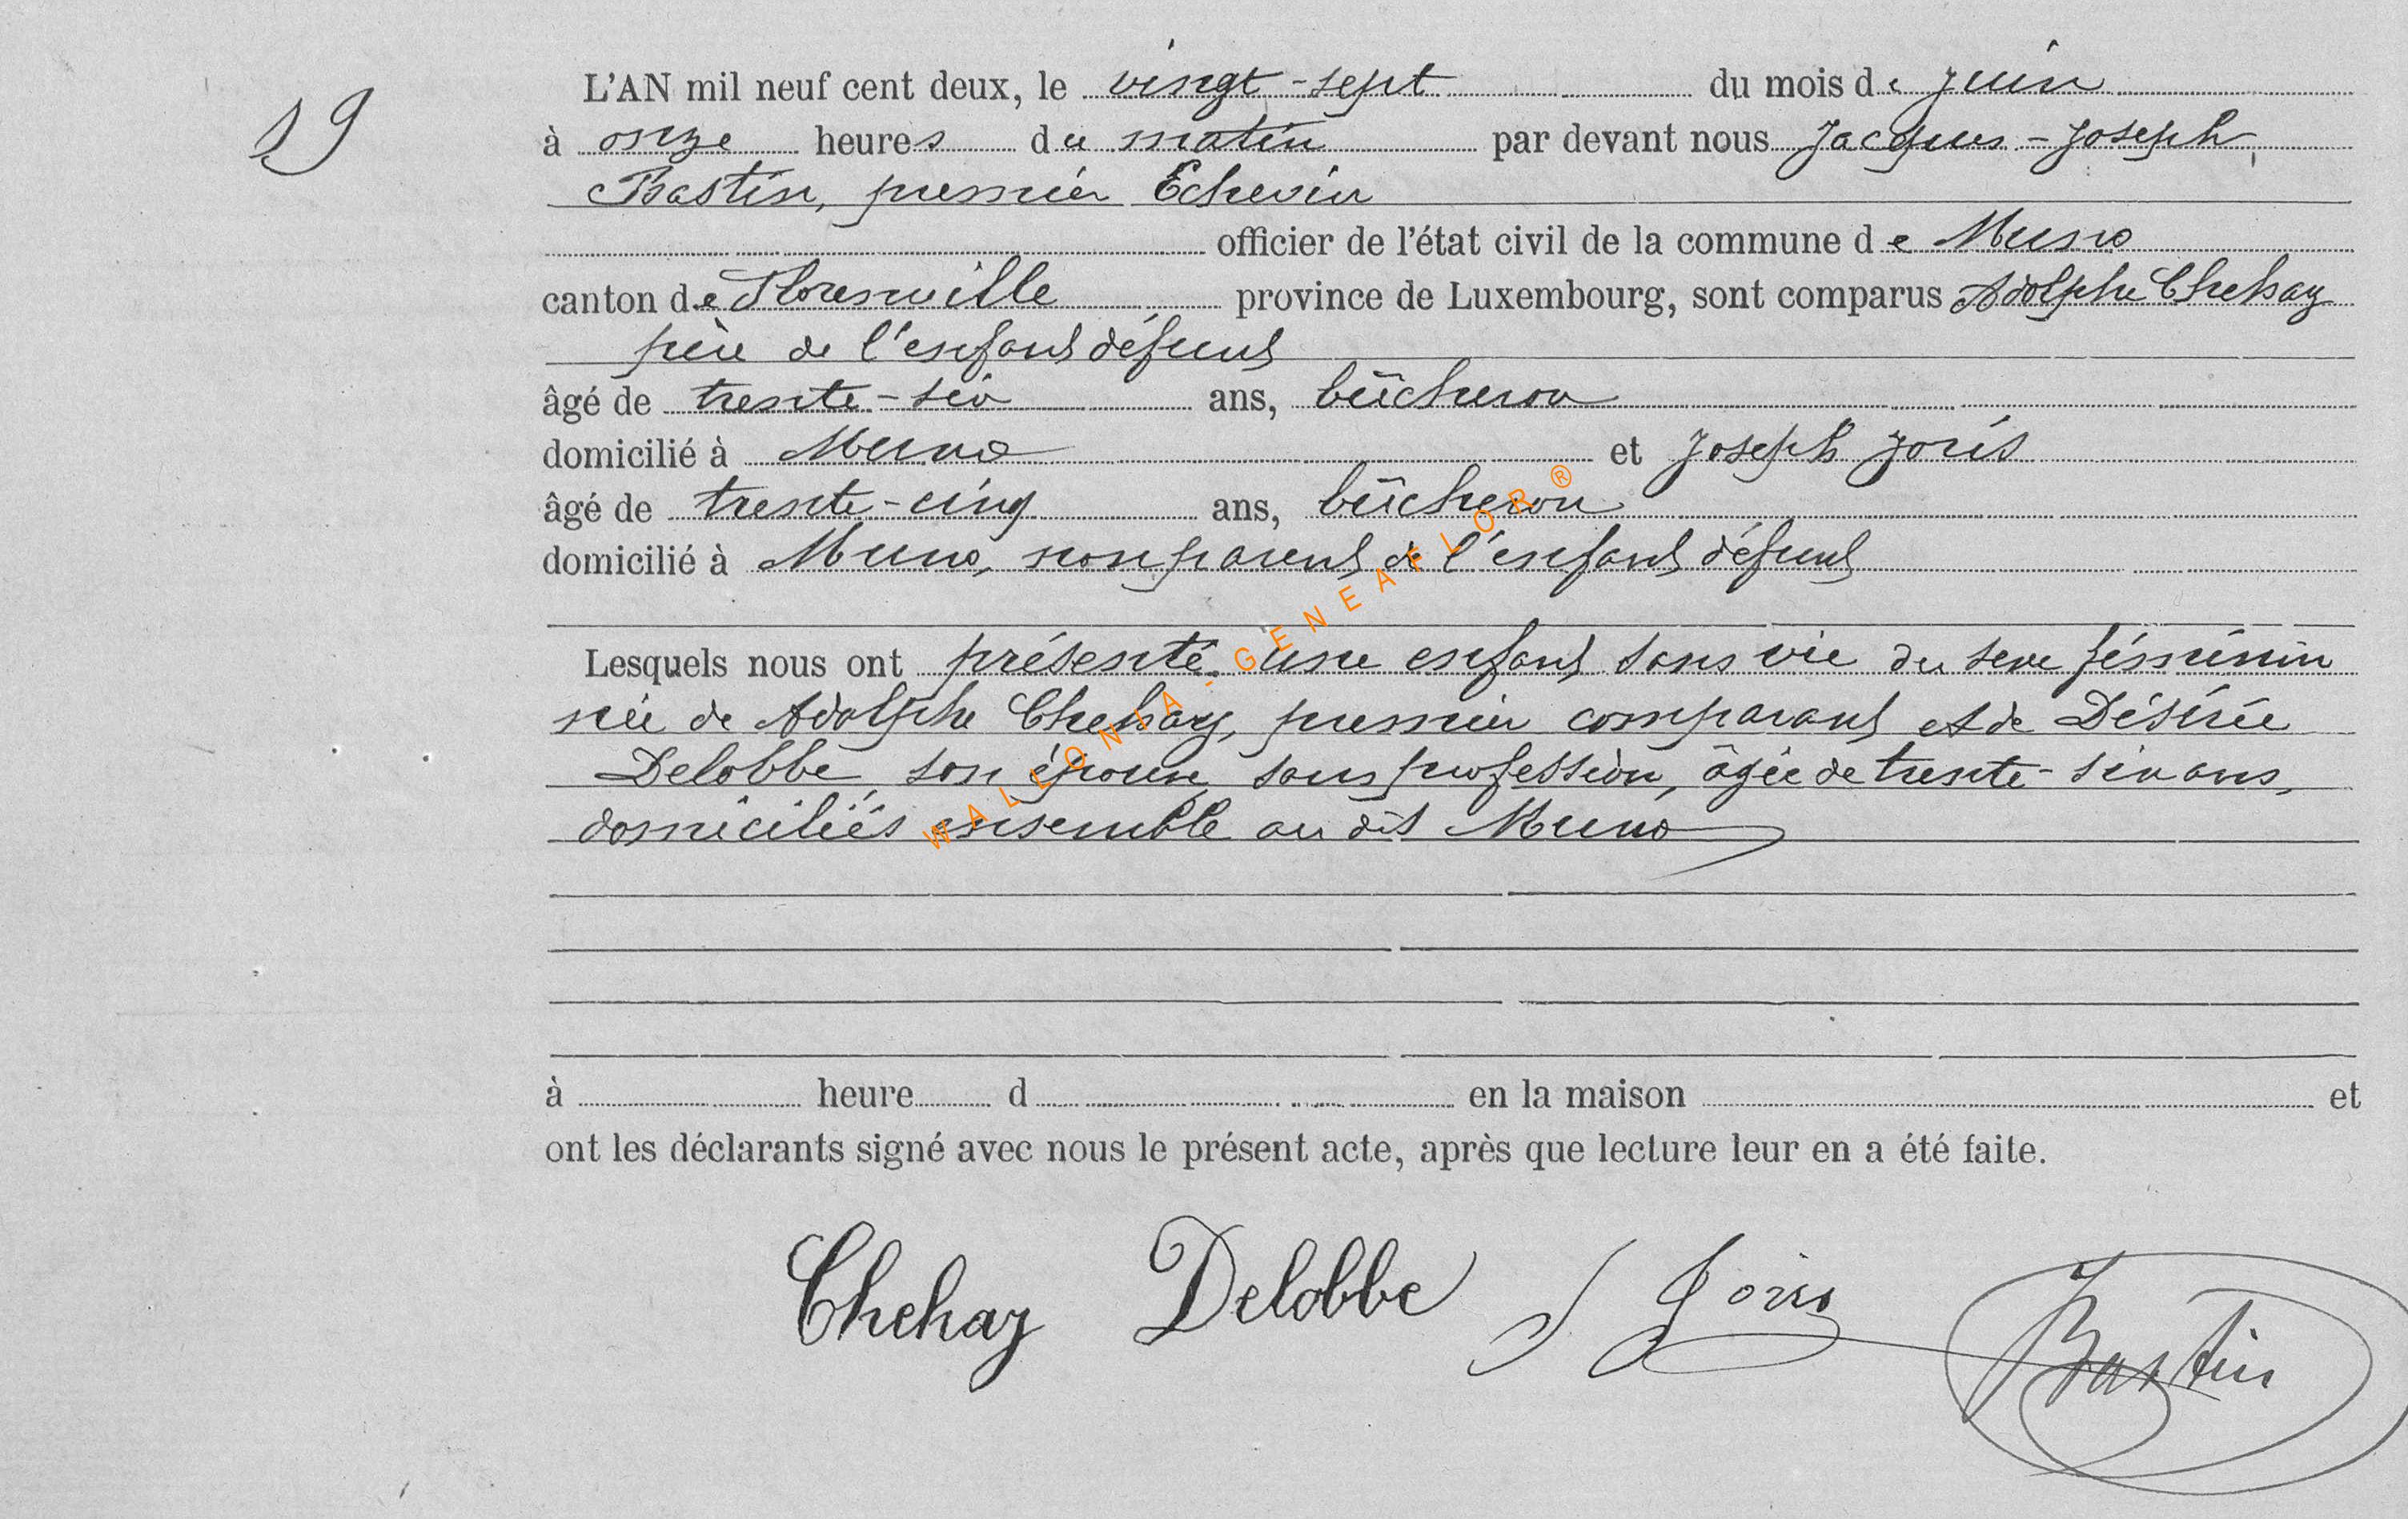 19
L'AN mil neuf cent deux, le vingt-sept du mois de juin
à onze heures du matin par devant nous Jacques-Joseph
Bastin, premier Echevin
officier de l'état civil de la commune de Muno
canton de Florenville province de Luxembourg, sont comparus Adolphe Chehay
père de l'enfant défunt
âgé de trente-six ans, bûcheron
domicilié à Muno et Joseph Joris
âgé de trente-cinq ans, bûcheron
domicilié à Muno, non parent de l'enfant défunt
Lesquels nous ont présenté une enfant sans vie du sexe féminin
née de Adolphe Chehay, premier comparant et de Désirée
Delobbe, son épouse, sans profession, âgée de trente-six ans,
domiciliés ensemble au dit Muno
à heure d en la maison et
ont les déclarants signé avec nous le présent acte, après que lecture leur en a été faite.
Chehay Delobbe J Joris Bastin
WALLONIA - GENEAFLOR ®